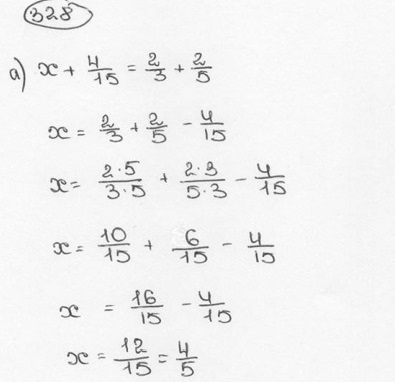 328
а) x + 4/15 = 2/3 + 2/5
x = 2/3 + 2/5 - 4/15
x = 2·5/3·5 + 2·3/5·3 - 4/15
x = 10/15 + 6/15 - 4/15
x = 16/15 - 4/15
x = 12/15 = 4/5